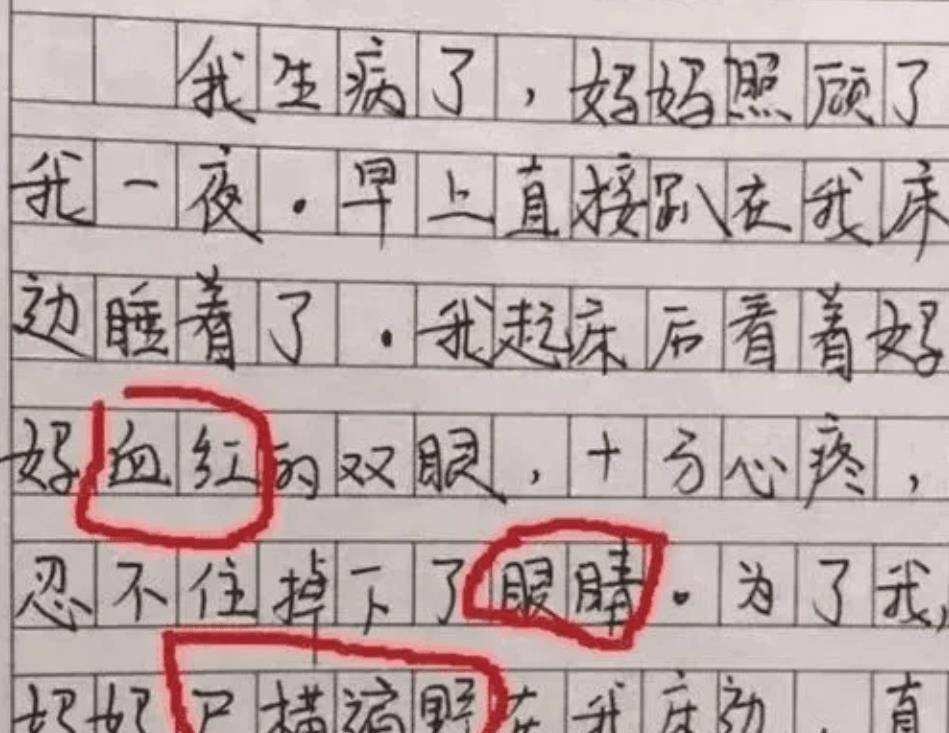 我生病了，妈妈照顾了
我一夜.早上直接趴在我床
边睡着了.我起床后看着妈
妈血红的双眼，十分心疼，
忍不住掉下了眼睛.为了我，
妈妈尸横遍野在我床边，直